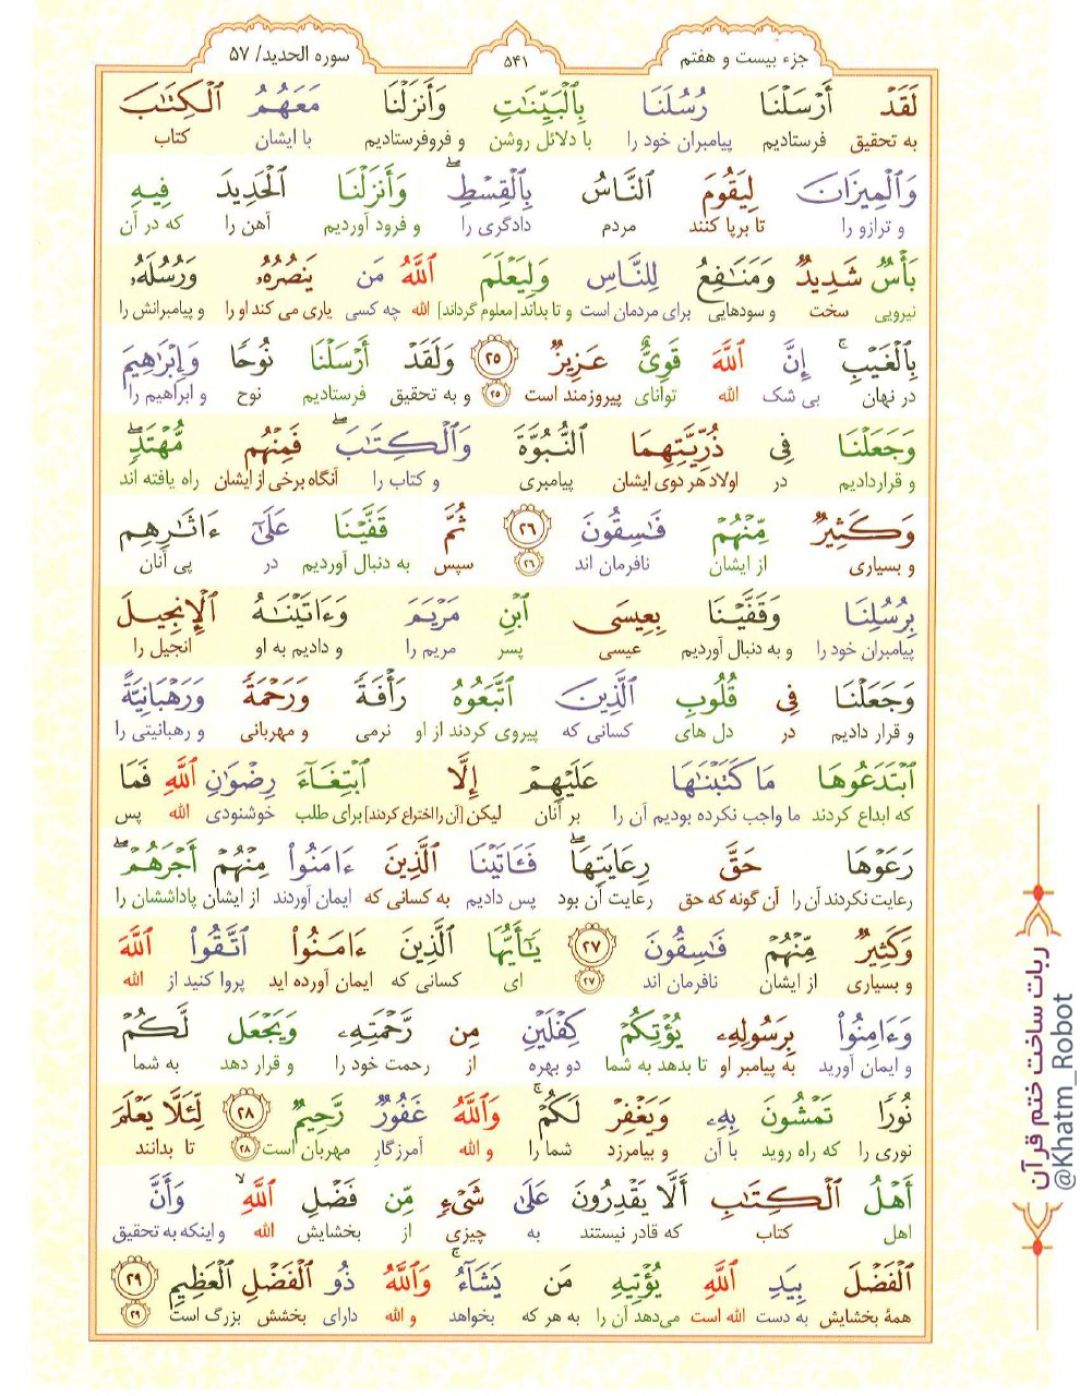 جزء بیست و هفتم
۵۴۱
سوره الحدید/ ۵۷
لَقَدۡ أَرۡسَلۡنَا رُسُلَنَا بِٱلۡبَيِّنَٰتِ وَأَنزَلۡنَا مَعَهُمُ ٱلۡكِتَٰبَ
به تحقیق فرستادیم پیامبران خود را با دلائل روشن و فروفرستادیم با ایشان کتاب
وَٱلۡمِيزَانَ لِيَقُومَ ٱلنَّاسُ بِٱلۡقِسۡطِۖ وَأَنزَلۡنَا ٱلۡحَدِيدَ فِيهِ
و ترازو را تا برپا کنند مردم دادگری را و فرود آوردیم آهن را که در آن
بَأۡسٞ شَدِيدٞ وَمَنَٰفِعُ لِلنَّاسِ وَلِيَعۡلَمَ ٱللَّهُ مَن يَنصُرُهُۥ وَرُسُلَهُۥ
نیرویی سخت و سودهایی برای مردمان است و تا بداند [معلوم گرداند] الله چه کسی یاری می کند او را و پیامبرانش را
بِٱلۡغَيۡبِۚ إِنَّ ٱللَّهَ قَوِيٌّ عَزِيزٞ ۲۵ وَلَقَدۡ أَرۡسَلۡنَا نُوحٗا وَإِبۡرَٰهِيمَ
در نهان بی شک الله توانای پیروزمند است ۲۵ و به تحقیق فرستادیم نوح و ابراهیم را
وَجَعَلۡنَا فِي ذُرِّيَّتِهِمَا ٱلنُّبُوَّةَ وَٱلۡكِتَٰبَۖ فَمِنۡهُم مُّهۡتَدٖۖ
و قراردادیم در اولاد هر دوی ایشان پیامبری و کتاب را آنگاه برخی از ایشان راه یافته اند
وَكَثِيرٞ مِّنۡهُمۡ فَٰسِقُونَ ۲۶ ثُمَّ قَفَّيۡنَا عَلَىٰٓ ءَاثَٰرِهِم
و بسیاری از ایشان نافرمان اند ۲۶ سپس به دنبال آوردیم در پی آنان
بِرُسُلِنَا وَقَفَّيۡنَا بِعِيسَى ٱبۡنِ مَرۡيَمَ وَءَاتَيۡنَٰهُ ٱلۡإِنجِيلَ
پیامبران خود را و به دنبال آوردیم عیسی پسر مریم را و دادیم به او انجیل را
وَجَعَلۡنَا فِي قُلُوبِ ٱلَّذِينَ ٱتَّبَعُوهُ رَأۡفَةٗ وَرَحۡمَةٗ وَرَهۡبَانِيَّةً
و قرار دادیم در دل های کسانی که پیروی کردند از او نرمی و مهربانی و رهبانیتی را
ٱبۡتَدَعُوهَا مَا كَتَبۡنَٰهَا عَلَيۡهِمۡ إِلَّا ٱبۡتِغَآءَ رِضۡوَٰنِ ٱللَّهِ فَمَا
که ابداع کردند ما واجب نکرده بودیم آن را بر آنان لیکن [آن را اختراع کردند] برای طلب خوشنودی الله پس
رَعَوۡهَا حَقَّ رِعَايَتِهَاۖ فَـَٔاتَيۡنَا ٱلَّذِينَ ءَامَنُواْ مِنۡهُمۡ أَجۡرَهُمۡۖ
رعایت نکردند آن را آن گونه که حق رعایت آن بود پس دادیم به کسانی که ایمان آوردند از ایشان پاداششان را
وَكَثِيرٞ مِّنۡهُمۡ فَٰسِقُونَ ۲۷ يَٰٓأَيُّهَا ٱلَّذِينَ ءَامَنُواْ ٱتَّقُواْ ٱللَّهَ
و بسیاری از ایشان نافرمان اند ۲۷ ای کسانی که ایمان آورده اید پروا کنید از الله
وَءَامِنُواْ بِرَسُولِهِۦ يُؤۡتِكُمۡ كِفۡلَيۡنِ مِن رَّحۡمَتِهِۦ وَيَجۡعَل لَّكُمۡ
و ایمان آورید به پیامبر او تا بدهد به شما دو بهره از رحمت خود را و قرار دهد به شما
نُورٗا تَمۡشُونَ بِهِۦ وَيَغۡفِرۡ لَكُمۡۚ وَٱللَّهُ غَفُورٞ رَّحِيمٞ ۲۸ لِّئَلَّا يَعۡلَمَ
نوری را که راه روید با آن و بیامرزد شما را و الله آمرزگار مهربان است ۲۸ تا بدانند
أَهۡلُ ٱلۡكِتَٰبِ أَلَّا يَقۡدِرُونَ عَلَىٰ شَيۡءٖ مِّن فَضۡلِ ٱللَّهِۙ وَأَنَّ
اهل کتاب که قادر نیستند به چیزی از بخشایش الله و اینکه به تحقیق
ٱلۡفَضۡلَ بِيَدِ ٱللَّهِ يُؤۡتِيهِ مَن يَشَآءُۚ وَٱللَّهُ ذُو ٱلۡفَضۡلِ ٱلۡعَظِيمِ ۲۹
همهٔ بخشایش به دست الله است می‌دهد آن را به هر که بخواهد و الله دارای بخشش بزرگ است ۲۹
ربات ساخت ختم قرآن
@Khatm_Robot